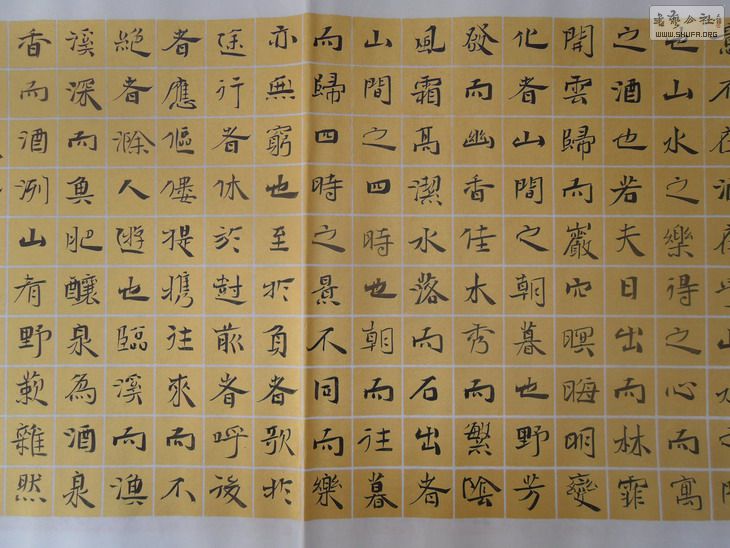 意不在酒在乎山水之間
也山水之樂得之心而寓
之酒也若夫日出而林霏
開雲歸而巖穴暝晦明變
化者山間之朝暮也野芳
發而幽香佳木秀而繁陰
風霜高潔水落而石出者
山間之四時也朝而往暮
而歸四時之景不同而樂
亦無窮也至於負者歌於
途行者休於樹前者呼後
者應傴僂提携往來而不
絕者滁人遊也臨溪而漁
溪深而魚肥釀泉為酒泉
香而酒洌山肴野蔌雜然
书艺公社
WWW.SHUFA.ORG